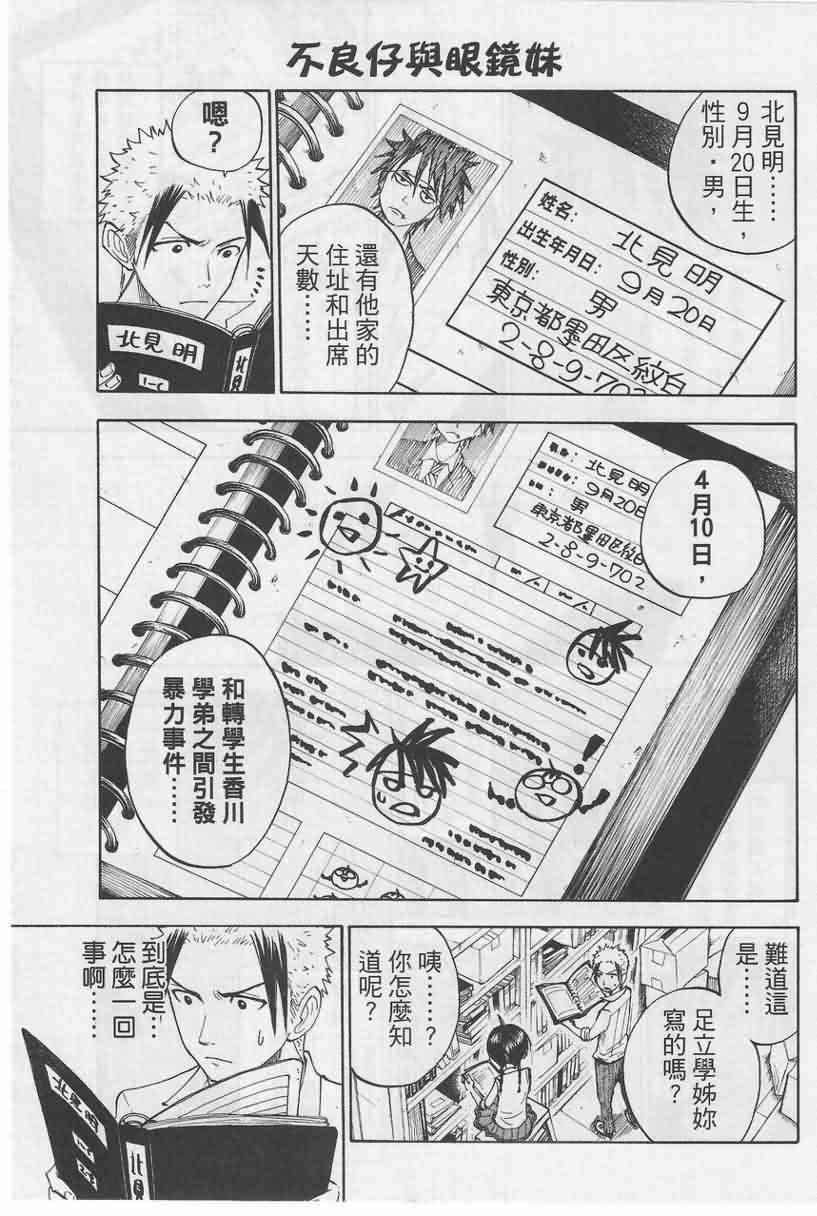 不良仔與眼鏡妹
北見明……
9月20日生，
性別・男，
姓名: 北見明
出生年月日: 9月20日
性別: 男
東京都墨田区紋白
2-8-9-702
還有他家的
住址和出席
天數……
嗯？
北見明
1-C
北見
4月10日，
北見明
9月20日
男
東京都墨田区紋白
2-8-9-702
和轉學生香川
學弟之間引發
暴力事件……
難道這
是……
足立學姊妳
寫的嗎？
咦……？
你怎麼知
道呢？
到底是…
怎麼一回
事啊……
北見明
北見